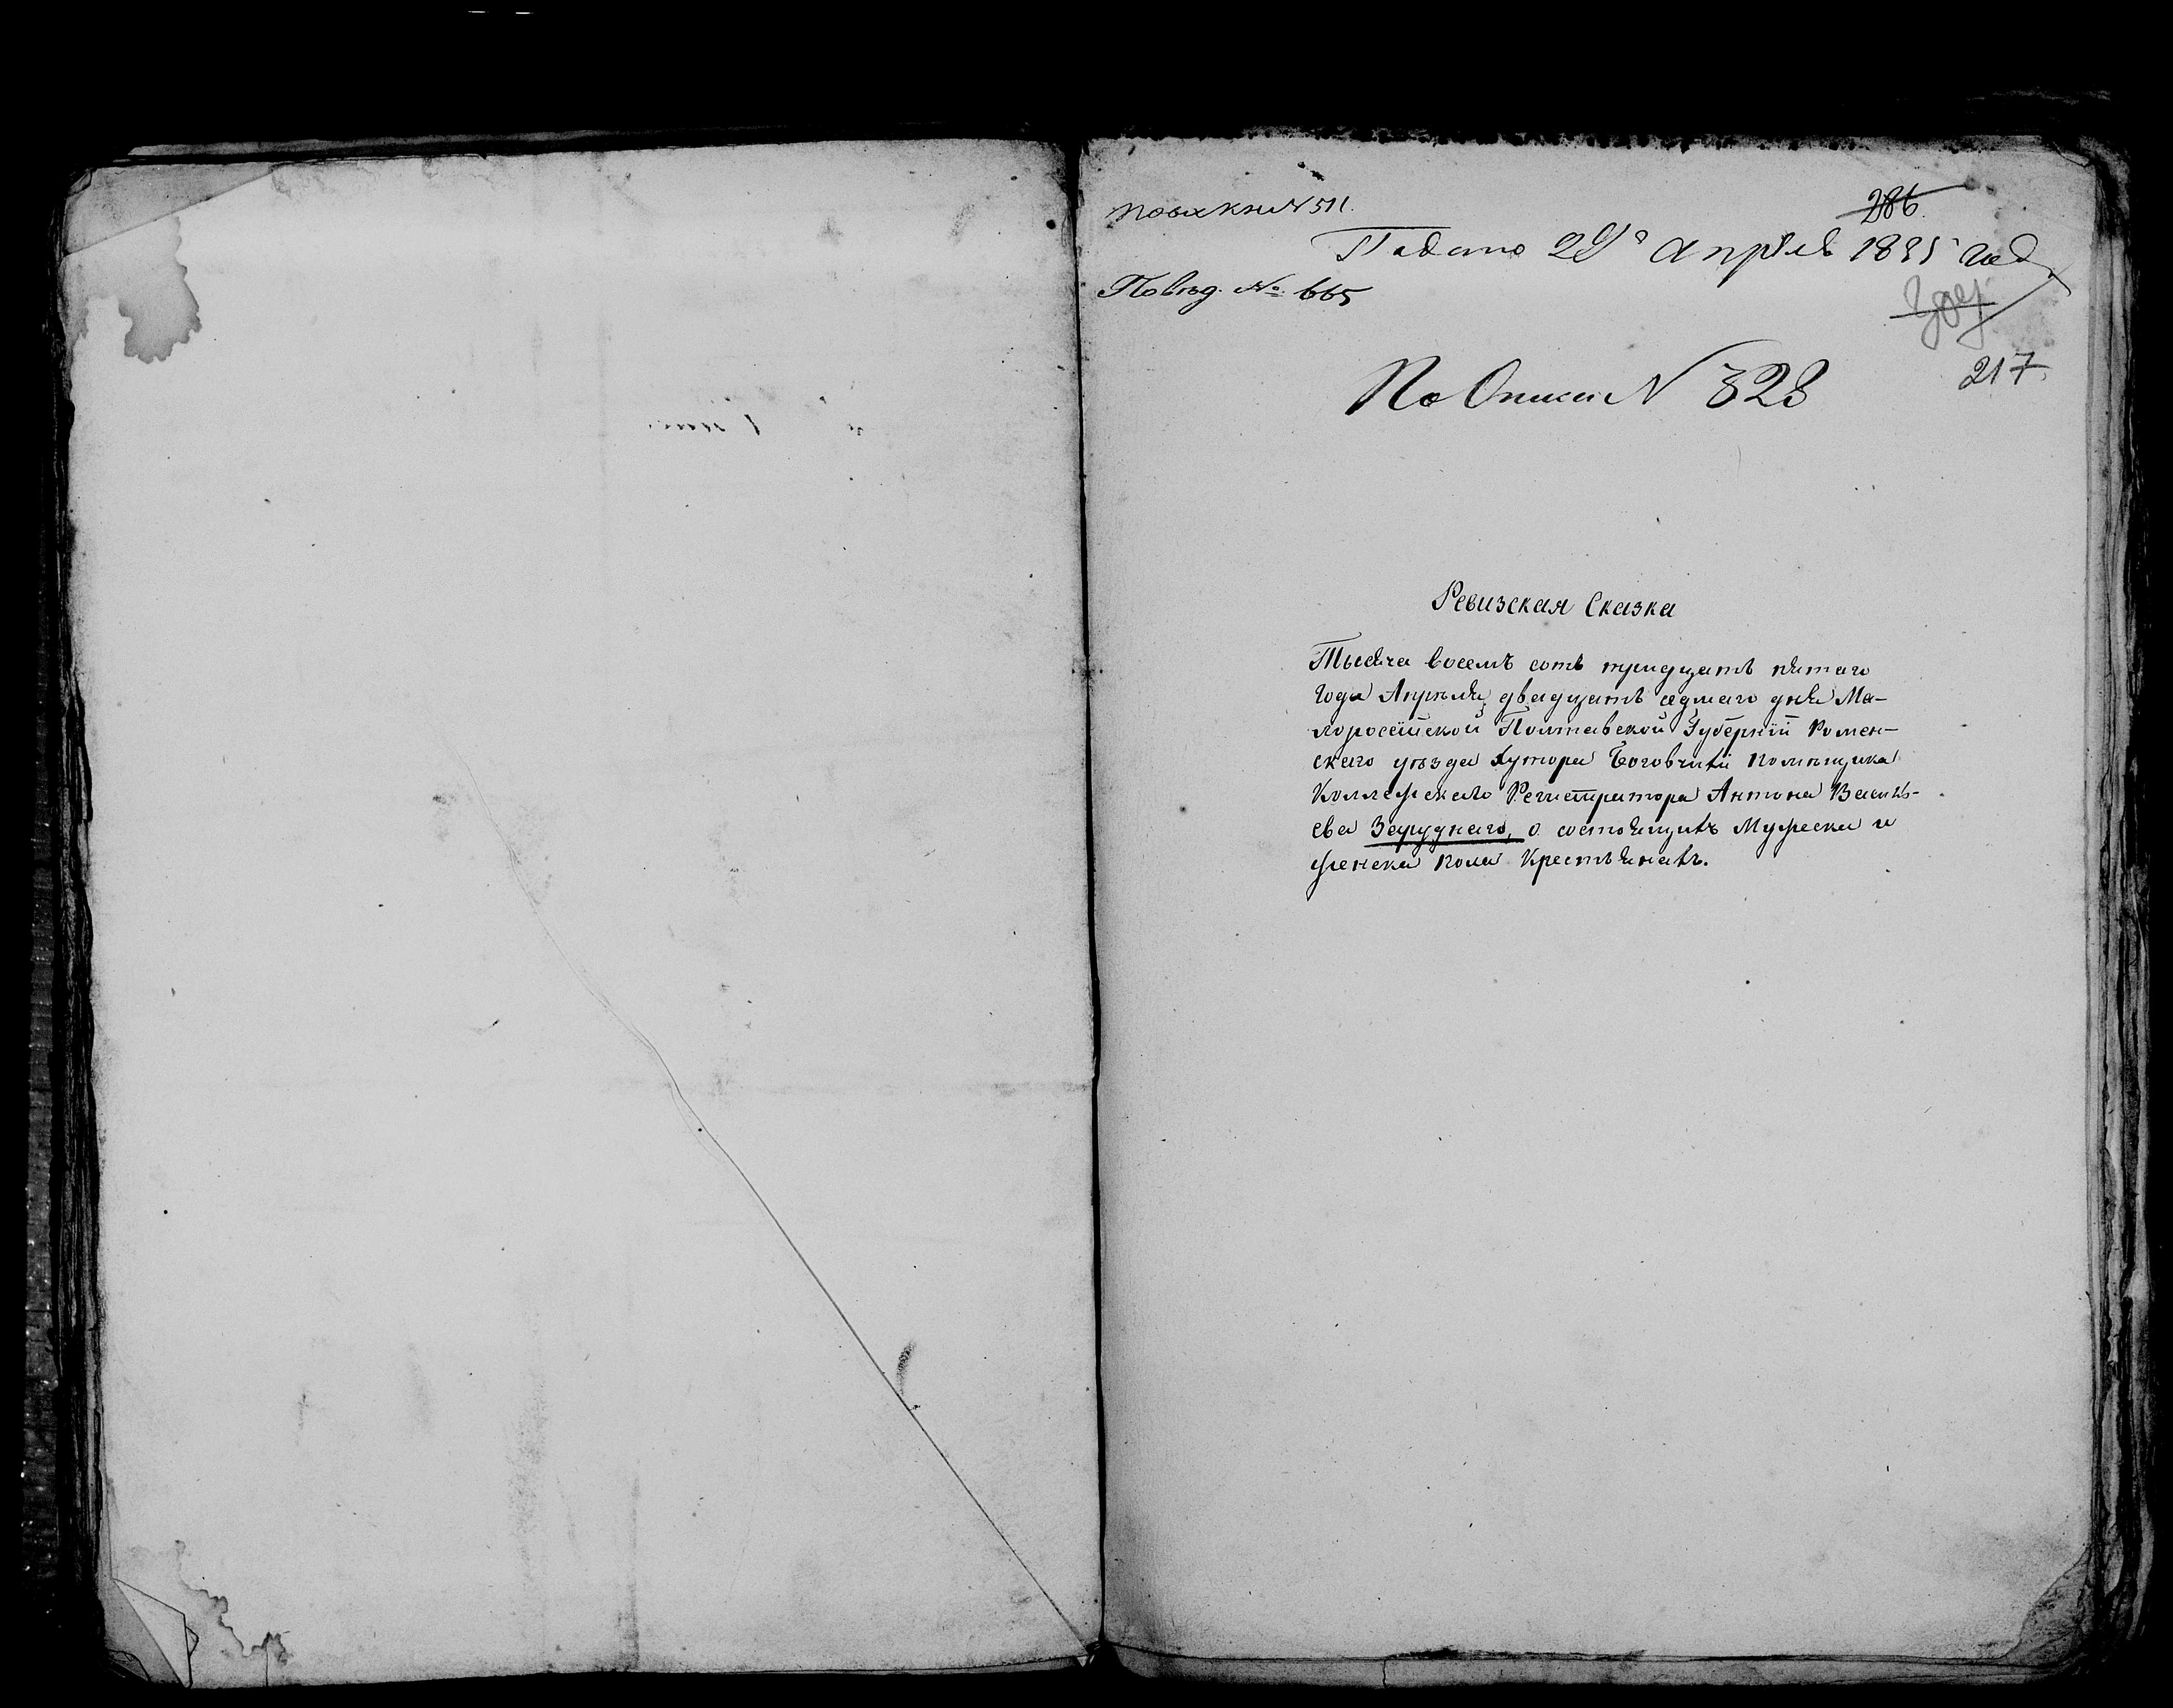 № 511.
286.
Подано апрѣля 1835 год
Повѣд. № 665
217
По Описи N 323
Ревизская Сказка
Тысяча восемъ сотъ тридцать пятаго
года Апрѣля двадцать седмаго дня Ма-
лоросѣйской Полтавской Губернѣи Ромен-
скаго уѣзда Хутора помѣщика
Коллежскаго Регистратора Антона Василь-
ева Заруднаго, о состоящихъ Мужеска и
женска пола Крестьянахъ.